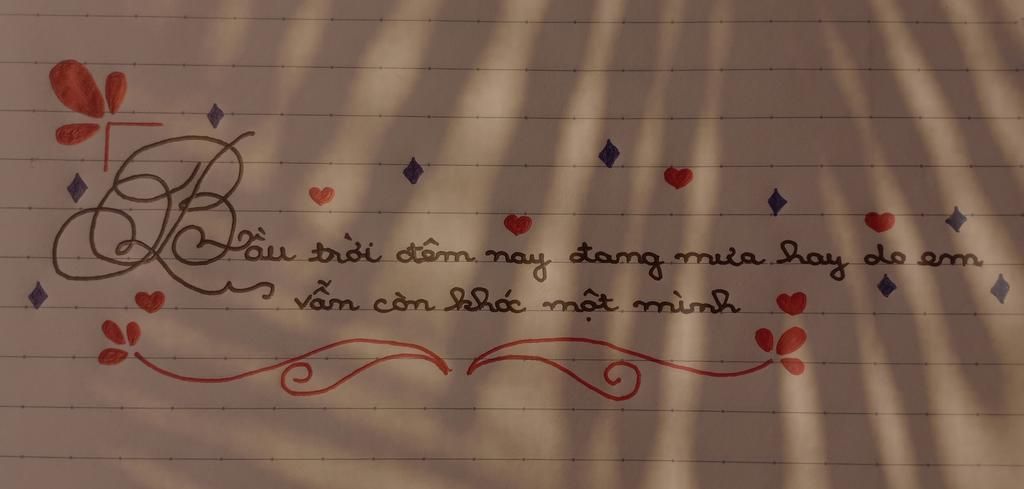 Bầu trời đêm nay đang mưa hay do em
vẫn còn khóc một mình